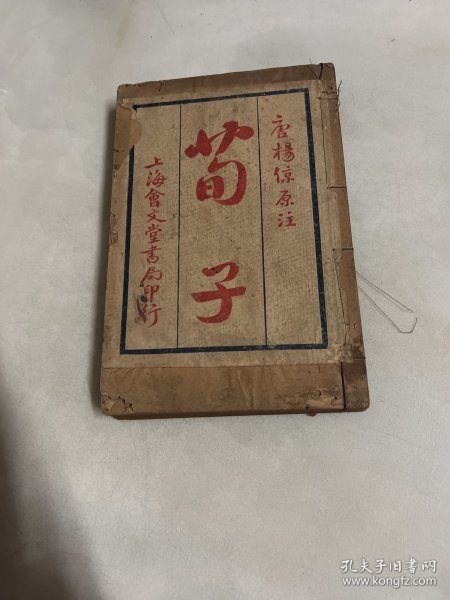 唐楊倞原注
荀子
上海會文堂書局印行
孔夫子旧书网
www.kongfz.com